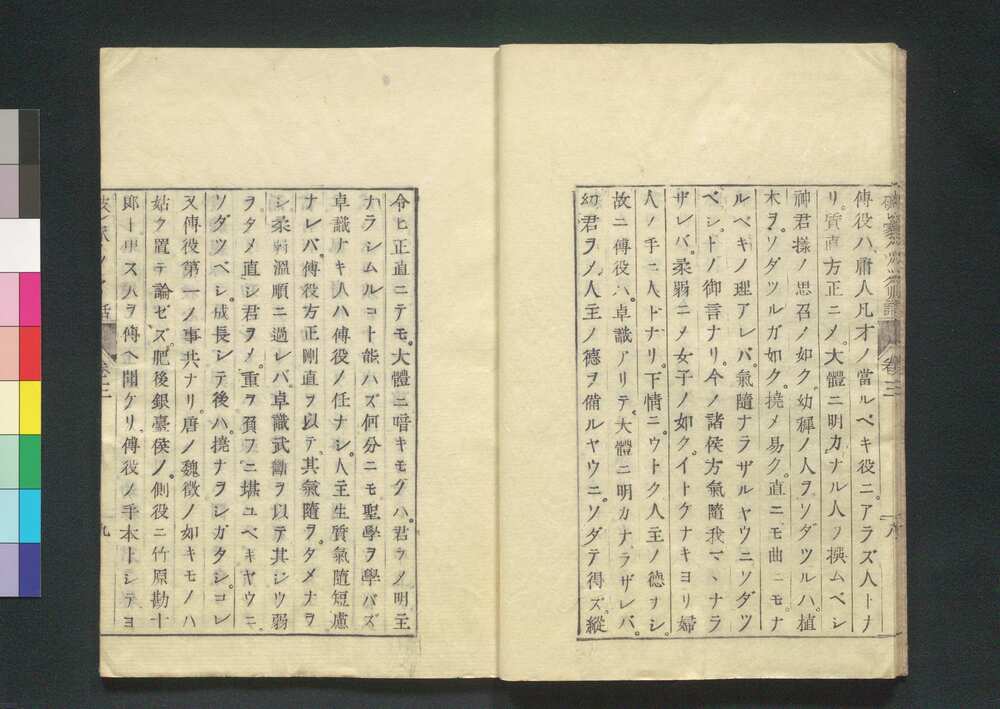 傳役ハ庸人凡才ノ當ルベキ役ニ。アラズ人トナ
リ。質直方正ニメ。大體ニ明カ。ナル人ヲ撰ムベシ
神君樣ノ思召ノ如ク。幼穉ノ人ヲソダツルハ。植
木ヲ。ソダツルガ如ク。撓メ易ク。直ニモ曲ニモ。ナ
ルベキノ理アレバ。氣隨ナラザルヤウニソダツ
ベシ。トノ御言ナリ。今ノ諸侯方氣隨我マヽナラ
ザレバ。柔弱ニメ女子ノ如ク。イトケナキヨリ婦
人ノ手ニ人トナリ。下情ニ。ウトク人主ノ德ナシ。
故ニ傳役ハ。卓識アリテ大體ニ明カナラザレバ。
幼君ヲメ人主ノ德ヲ備ルヤウニ。ソダテ得ズ。縱
令ヒ正直ニテモ。大體ニ暗キモノハ。君ヲメ明主
ナラシムルコト能ハズ何分ニモ聖學ヲ學バズ
卓識ナキ人ハ傳役ノ任ナシ。人主生質氣隨短慮
ナレバ。傳役方正剛直ヲ以テ。其氣隨ヲ。タメナヲ
シ柔弱溫順ニ過レバ。卓識武斷ヲ以テ其ジウ弱
ヲタメ直シ君ヲメ。重ヲ負フニ堪ユベキヤウニ
ソダツベシ。成長シテ後ハ。撓ナヲシガタシ。コレ
又傳役第一ノ事共ナリ。唐ノ魏徵ノ如キモノハ
姑ク置テ論ゼズ。肥後銀臺侯ノ。側役ニ竹原勘十
郎ト申ス人ヲ傳ヘ聞ケリ傳役ノ手本トシテヨ
卷三
八
卷三
九